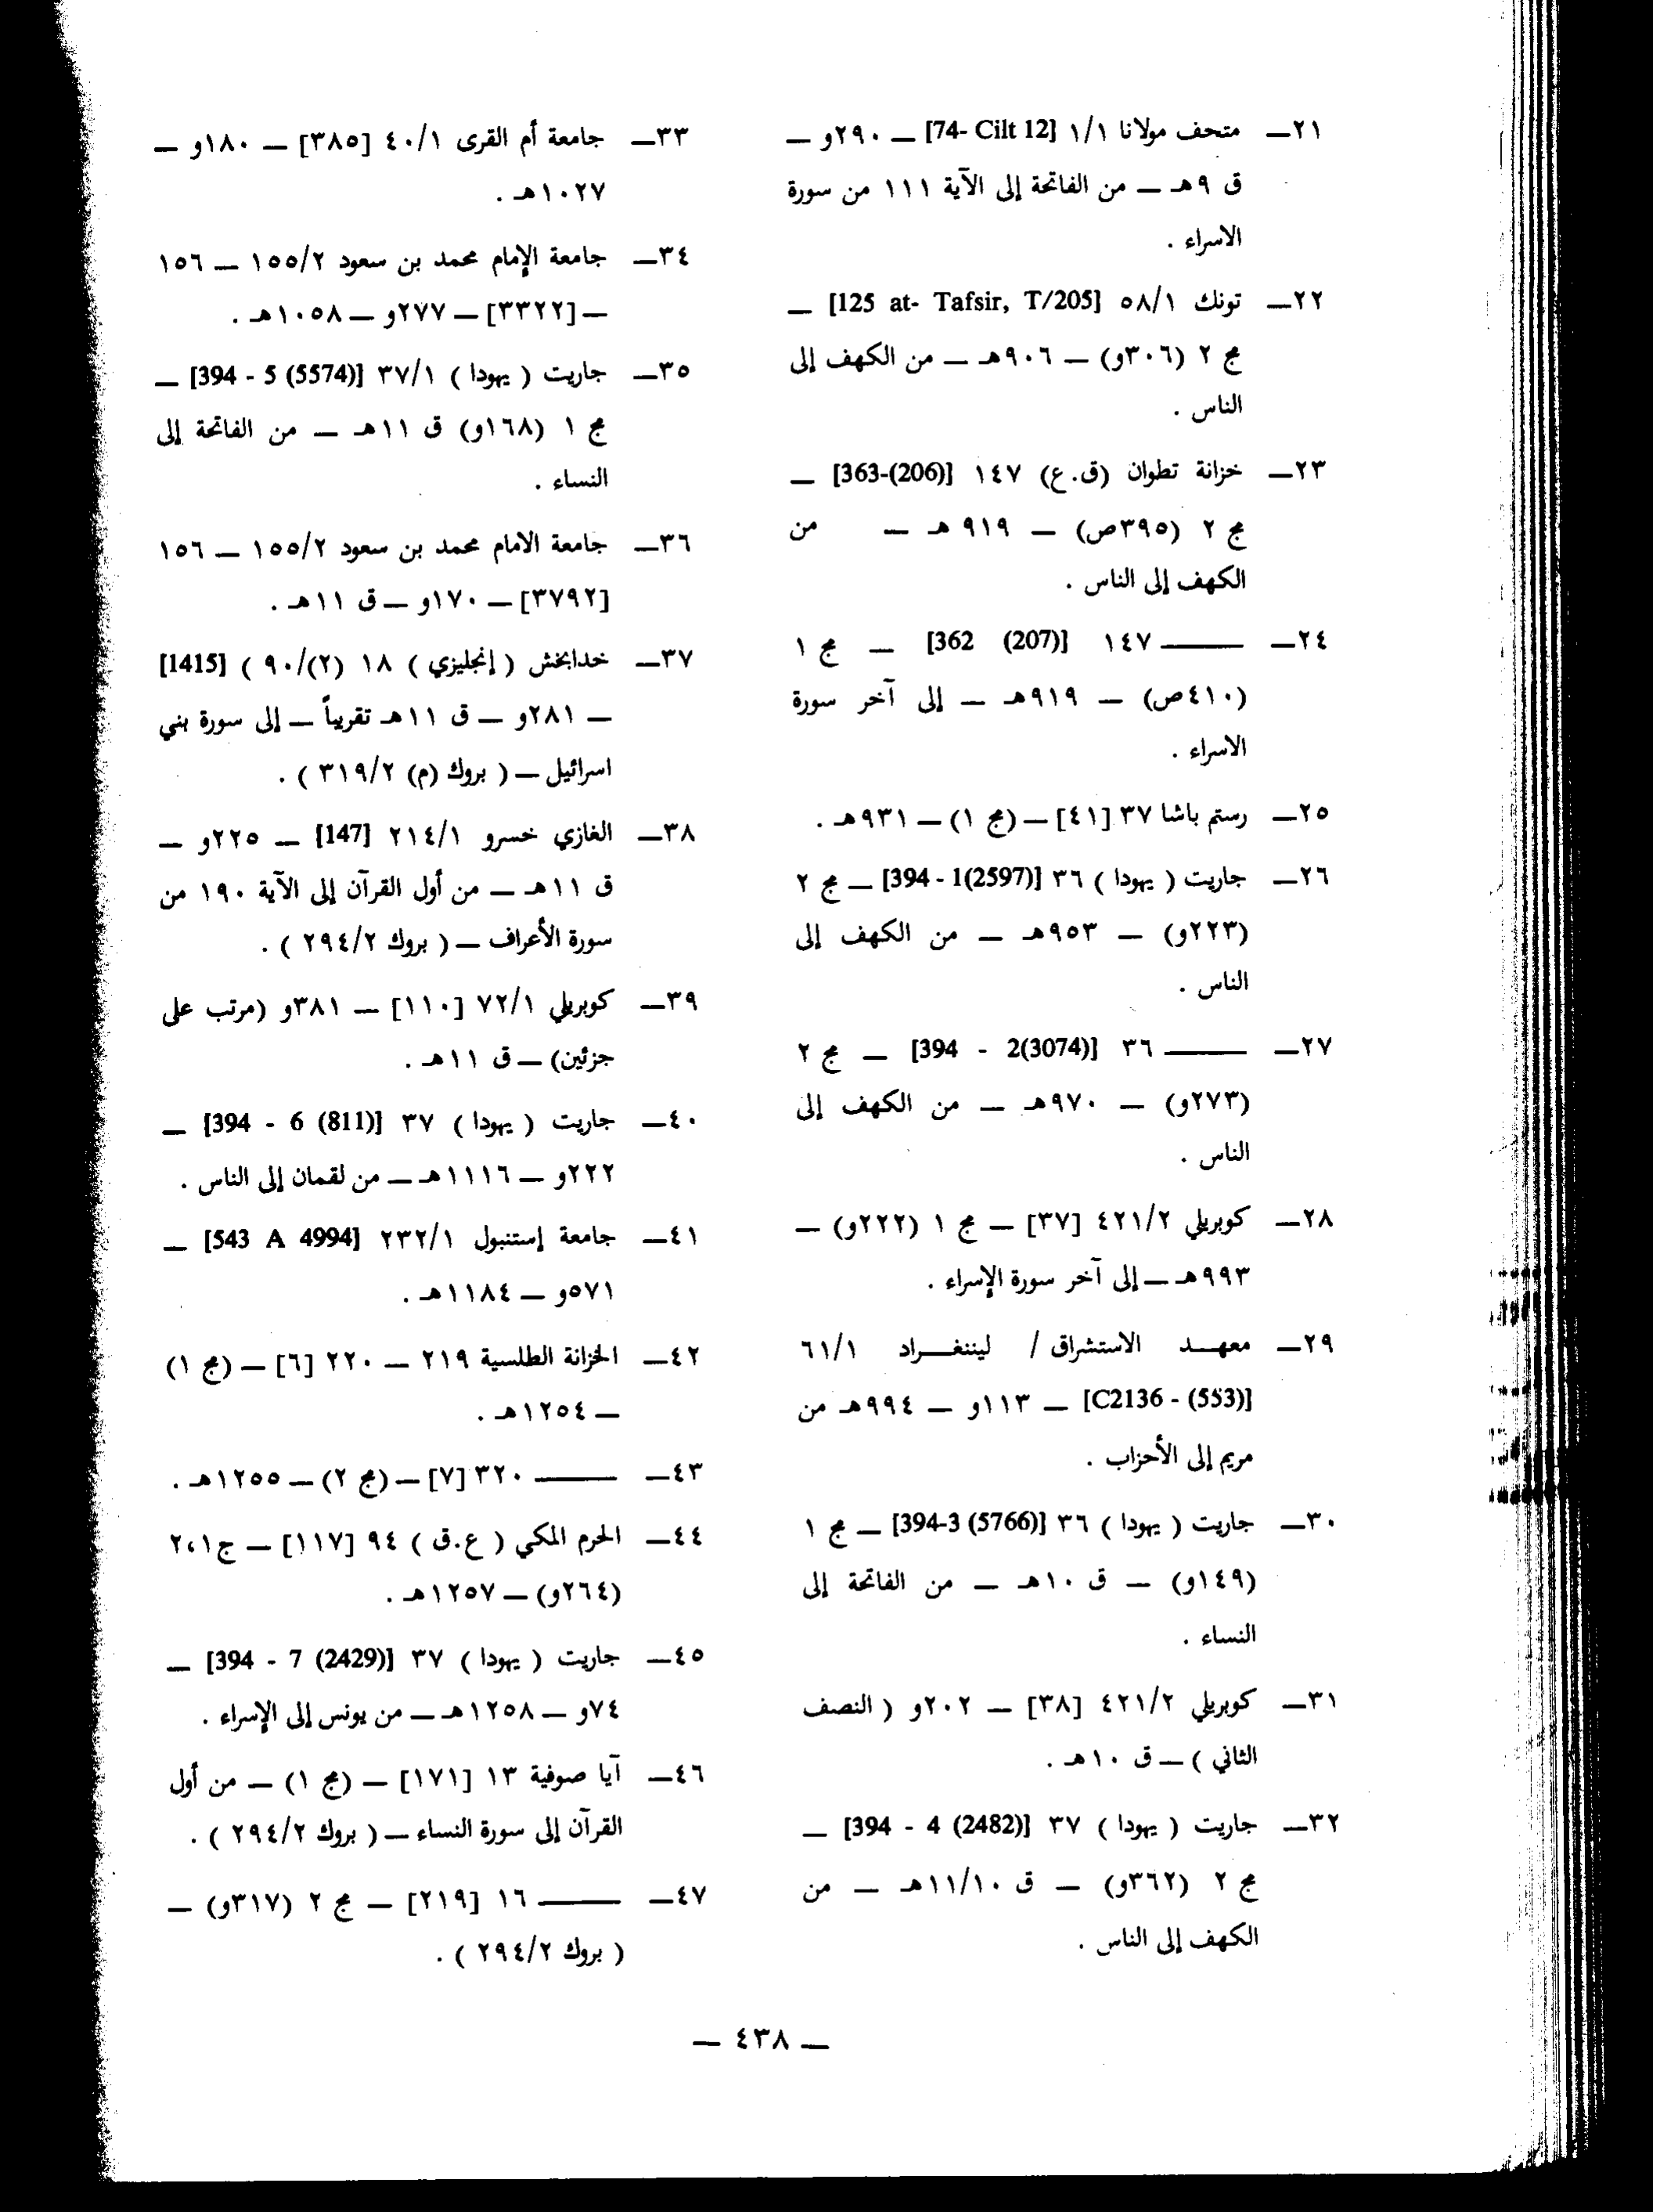 ٢١ـ متحف مولانا ١/١ [74- Cilt 12] ـ ٢٩٠و ـ
ق ٩هـ ـ من الفاتحة إلى الآية ١١١ من سورة
الاسراء .
٢٢ـ تونك ٥٨/١ [125 at- Tafsir, T/205] ـ
مج ٢ (٣٠٦و) ـ ٩٠٦هـ ـ من الكهف إلى
الناس .
٢٣ـ خزانة تطوان (ق.ع) ١٤٧ [363-(206)] ـ
مج ٢ (٣٩٥ص) ـ ٩١٩ هـ ـ من
الكهف إلى الناس .
٢٤ـ ــــــ ١٤٧ [362 (207)] ـ مج ١
(٤١٠ص) ـ ٩١٩هـ ـ إلى آخر سورة
الاسراء .
٢٥ـ رستم باشا ٣٧ [٤١] ـ (مج ١) ـ ٩٣١هـ .
٢٦ـ جاريت ( يهودا ) ٣٦ [394 - 1(2597)] ـ مج ٢
(٢٢٣و) ـ ٩٥٣هـ ـ من الكهف إلى
الناس .
٢٧ـ ــــــ ٣٦ [394 - 2(3074)] ـ مج ٢
(٢٧٣و) ـ ٩٧٠هـ ـ من الكهف إلى
الناس .
٢٨ـ كوبريلي ٤٢١/٢ [٣٧] ـ مج ١ (٢٢٢و) ـ
٩٩٣هـ ـ إلى آخر سورة الإسراء .
٢٩ـ معهـد الاستشراق / ليننغـراد ٦١/١
[C2136 - (553)] ـ ١١٣و ـ ٩٩٤هـ من
مريم إلى الأحزاب .
٣٠ـ جاريت ( يهودا ) ٣٦ [394-3 (5766)] ـ مج ١
(١٤٩و) ـ ق ١٠هـ ـ من الفاتحة إلى
النساء .
٣١ـ كوبريلي ٤٢١/٢ [٣٨] ـ ٢٠٢و ( النصف
الثاني ) ـ ق ١٠هـ .
٣٢ـ جاريت ( يهودا ) ٣٧ [394 - 4 (2482)] ـ
مج ٢ (٣٦٢و) ـ ق ١١/١٠هـ ـ من
الكهف إلى الناس .
٣٣ـ جامعة أم القرى ٤٠/١ [٣٨٥] ـ ١٨٠و ـ
١٠٢٧هـ .
٣٤ـ جامعة الإمام محمد بن سعود ١٥٥/٢ ـ ١٥٦
ـ [٣٣٢٢] ـ ٢٧٧و ـ ١٠٥٨هـ .
٣٥ـ جاريت ( يهودا ) ٣٧/١ [394 - 5 (5574)] ـ
مج ١ (١٦٨و) ق ١١هـ ـ من الفاتحة إلى
النساء .
٣٦ـ جامعة الامام محمد بن سعود ١٥٥/٢ ـ ١٥٦
[٣٧٩٢] ـ ١٧٠و ـ ق ١١هـ .
٣٧ـ خدابخش ( إنجليزي ) ١٨ (٢)/٩٠ ) [1415]
ـ ٢٨١و ـ ق ١١هـ تقريباً ـ إلى سورة بني
اسرائيل ـ ( بروك (م) ٣١٩/٢ ) .
٣٨ـ الغازي خسرو ٢١٤/١ [147] ـ ٢٢٥و ـ
ق ١١هـ ـ من أول القرآن إلى الآية ١٩٠ من
سورة الأعراف ـ ( بروك ٢٩٤/٢ ) .
٣٩ـ كوبريلي ٧٢/١ [١١٠] ـ ٣٨١و (مرتب على
جزئين) ـ ق ١١هـ .
٤٠ـ جاريت ( يهودا ) ٣٧ [394 - 6 (811)] ـ
٢٢٢و ـ ١١١٦هـ ـ من لقمان إلى الناس .
٤١ـ جامعة إستنبول ٢٣٢/١ [543 A 4994] ـ
٥٧١و ـ ١١٨٤هـ .
٤٢ـ الخزانة الطلسية ٢١٩ ـ ٢٢٠ [٦] ـ (مج ١)
ـ ١٢٥٤هـ .
٤٣ـ ــــــ ٣٢٠ [٧] ـ (مج ٢) ـ ١٢٥٥هـ .
٤٤ـ الحرم المكي ( ع.ق ) ٩٤ [١١٧] ـ ج١،٢
(٢٦٤و) ـ ١٢٥٧هـ .
٤٥ـ جاريت ( يهودا ) ٣٧ [394 - 7 (2429)] ـ
٧٤و ـ ١٢٥٨هـ ـ من يونس إلى الإسراء .
٤٦ـ آيا صوفية ١٣ [١٧١] ـ (مج ١) ـ من أول
القرآن إلى سورة النساء ـ ( بروك ٢٩٤/٢ ) .
٤٧ـ ــــــ ١٦ [٢١٩] ـ مج ٢ (٣١٧و) ـ
( بروك ٢٩٤/٢ ) .
ـ ٤٣٨ ـ